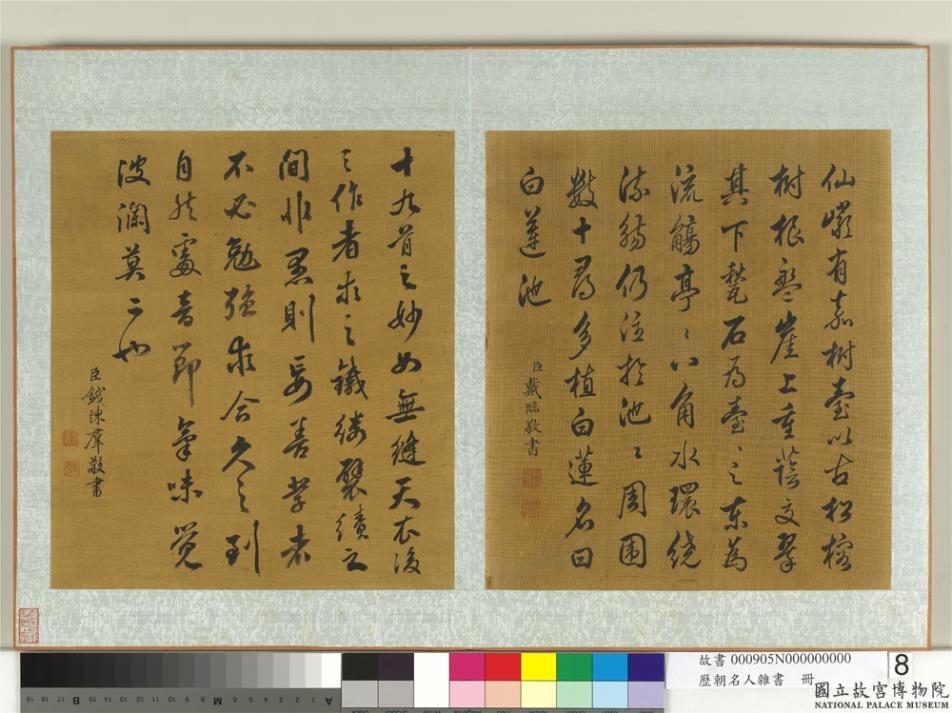 仙巖有嘉樹臺以古松榕
樹根盤崖上重蔭交翠
其下甃石為臺〻之東為
流觴亭〻八角水環繞
流觴仍注於池〻周圍
數十尋多植白蓮名曰
白蓮池
臣戴臨敬書
十九首之妙如無縫天衣後
之作者求之鍼縷襞績之
間非愚則妄善學者
不必勉強求合久之到
自然處音節氣味覺
波瀾莫二也
臣錢陳羣敬書
故書 000905N000000000
歷朝名人雜書 冊
8
國立故宮博物院
NATIONAL PALACE MUSEUM